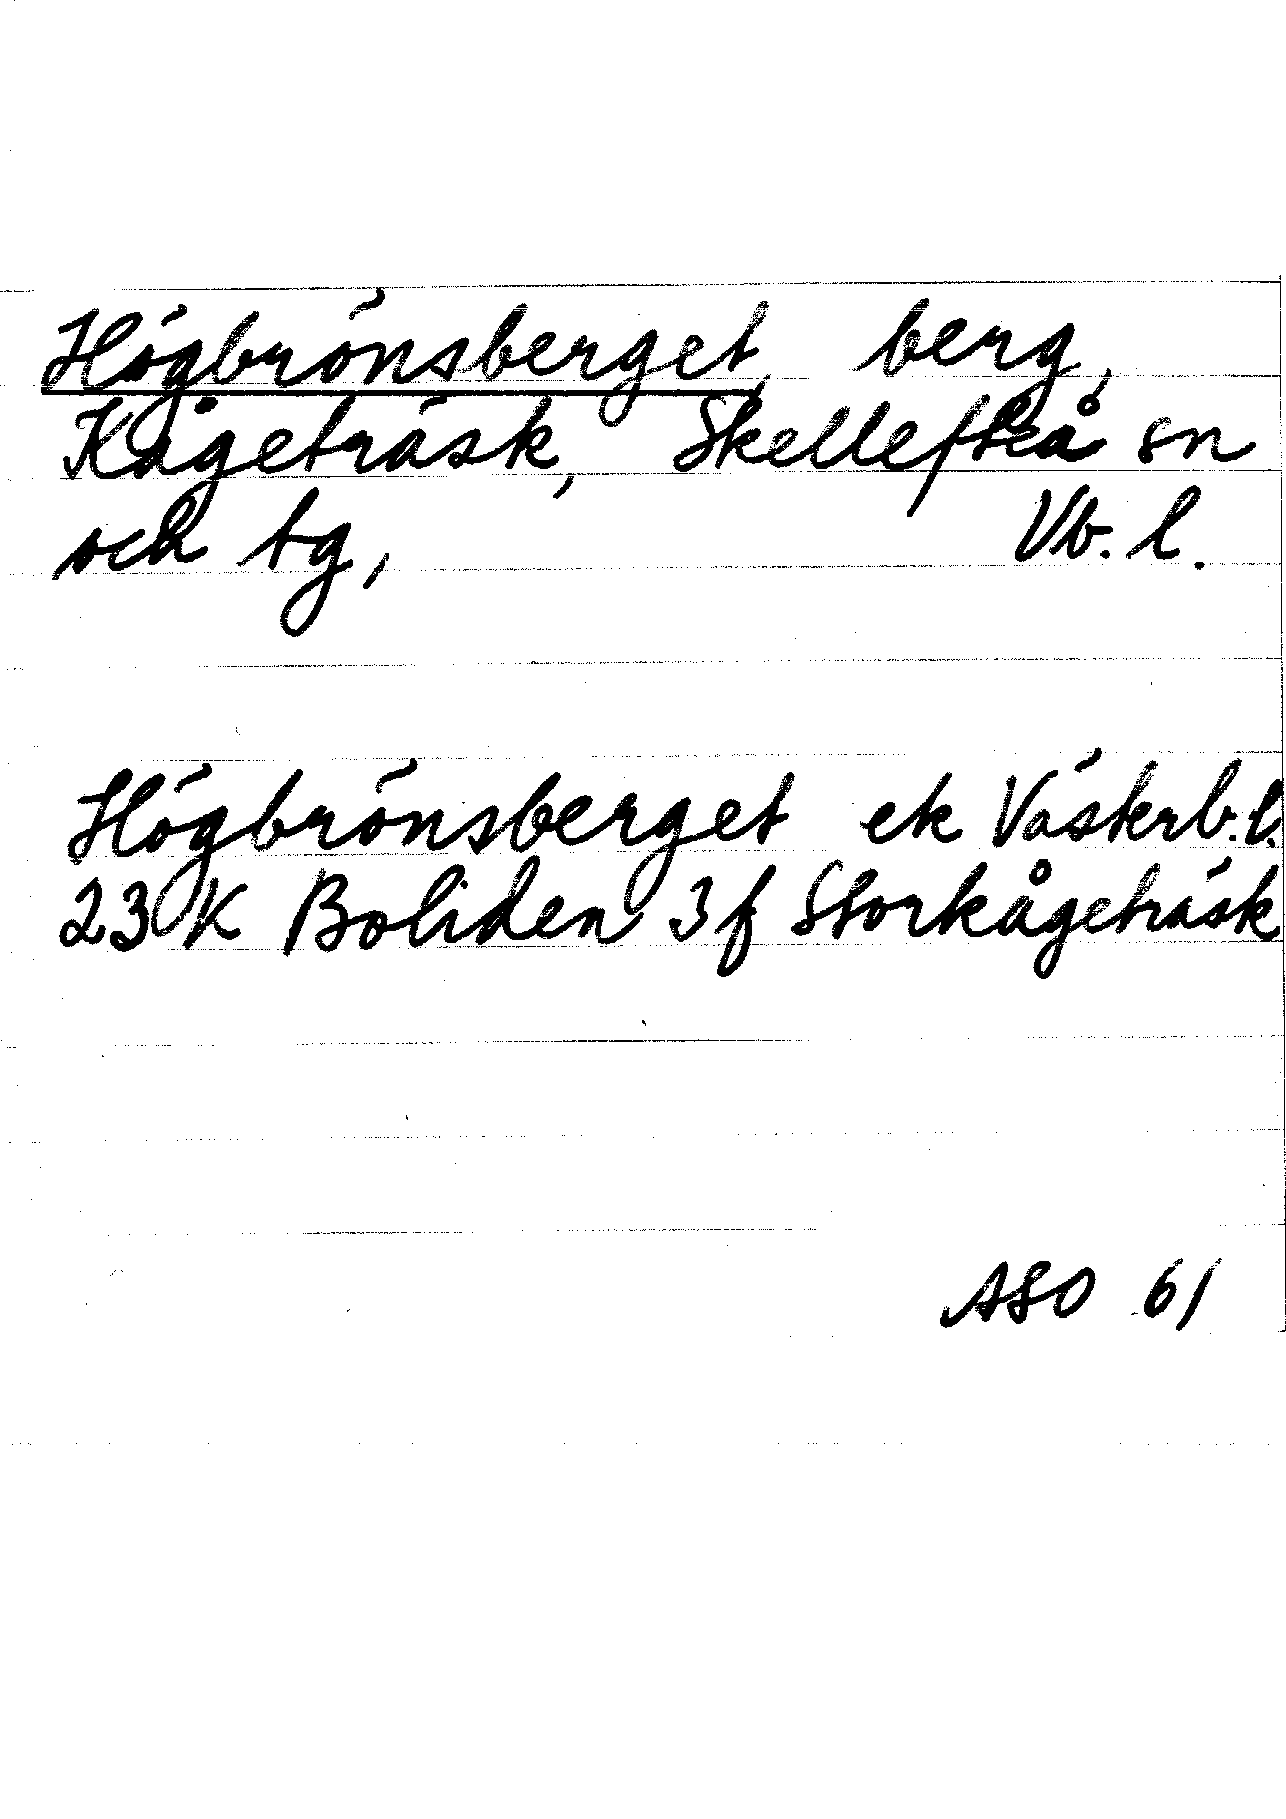 Högbrönsberget, berg,
Kågeträsk, Skellefteå sn
och tg, Vb. l.
Högbrönsberget ek Västerb. l.
23 K Boliden 3f Storkågeträsk
ASO 61